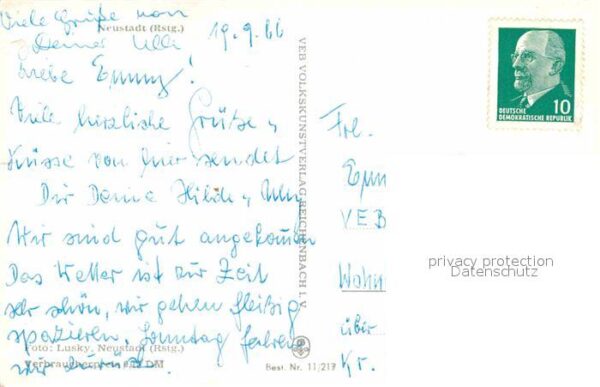 Viele Grüße von
Deiner Ulli
Neustadt (Rstg.)
19.9.66
Liebe Emmy!
Viele herzliche Grüße u.
Küsse von hier sendet
Dir Deine Hilde u. Ully
Wir sind gut angekommen
Das Wetter ist zur Zeit
sehr schön, wir gehen fleißig
spazieren. Sonntag fahren
wir zurück.
Foto: Lusky, Neustadt (Rstg.)
Verbraucherpreis DM
VEB VOLKSKUNSTVERLAG REICHENBACH I. V.
Best. Nr. 11/213
10
DEUTSCHE
DEMOKRATISCHE REPUBLIK
Frl.
Emm
VEB
Wohn
über
Kr.
privacy protection
Datenschutz